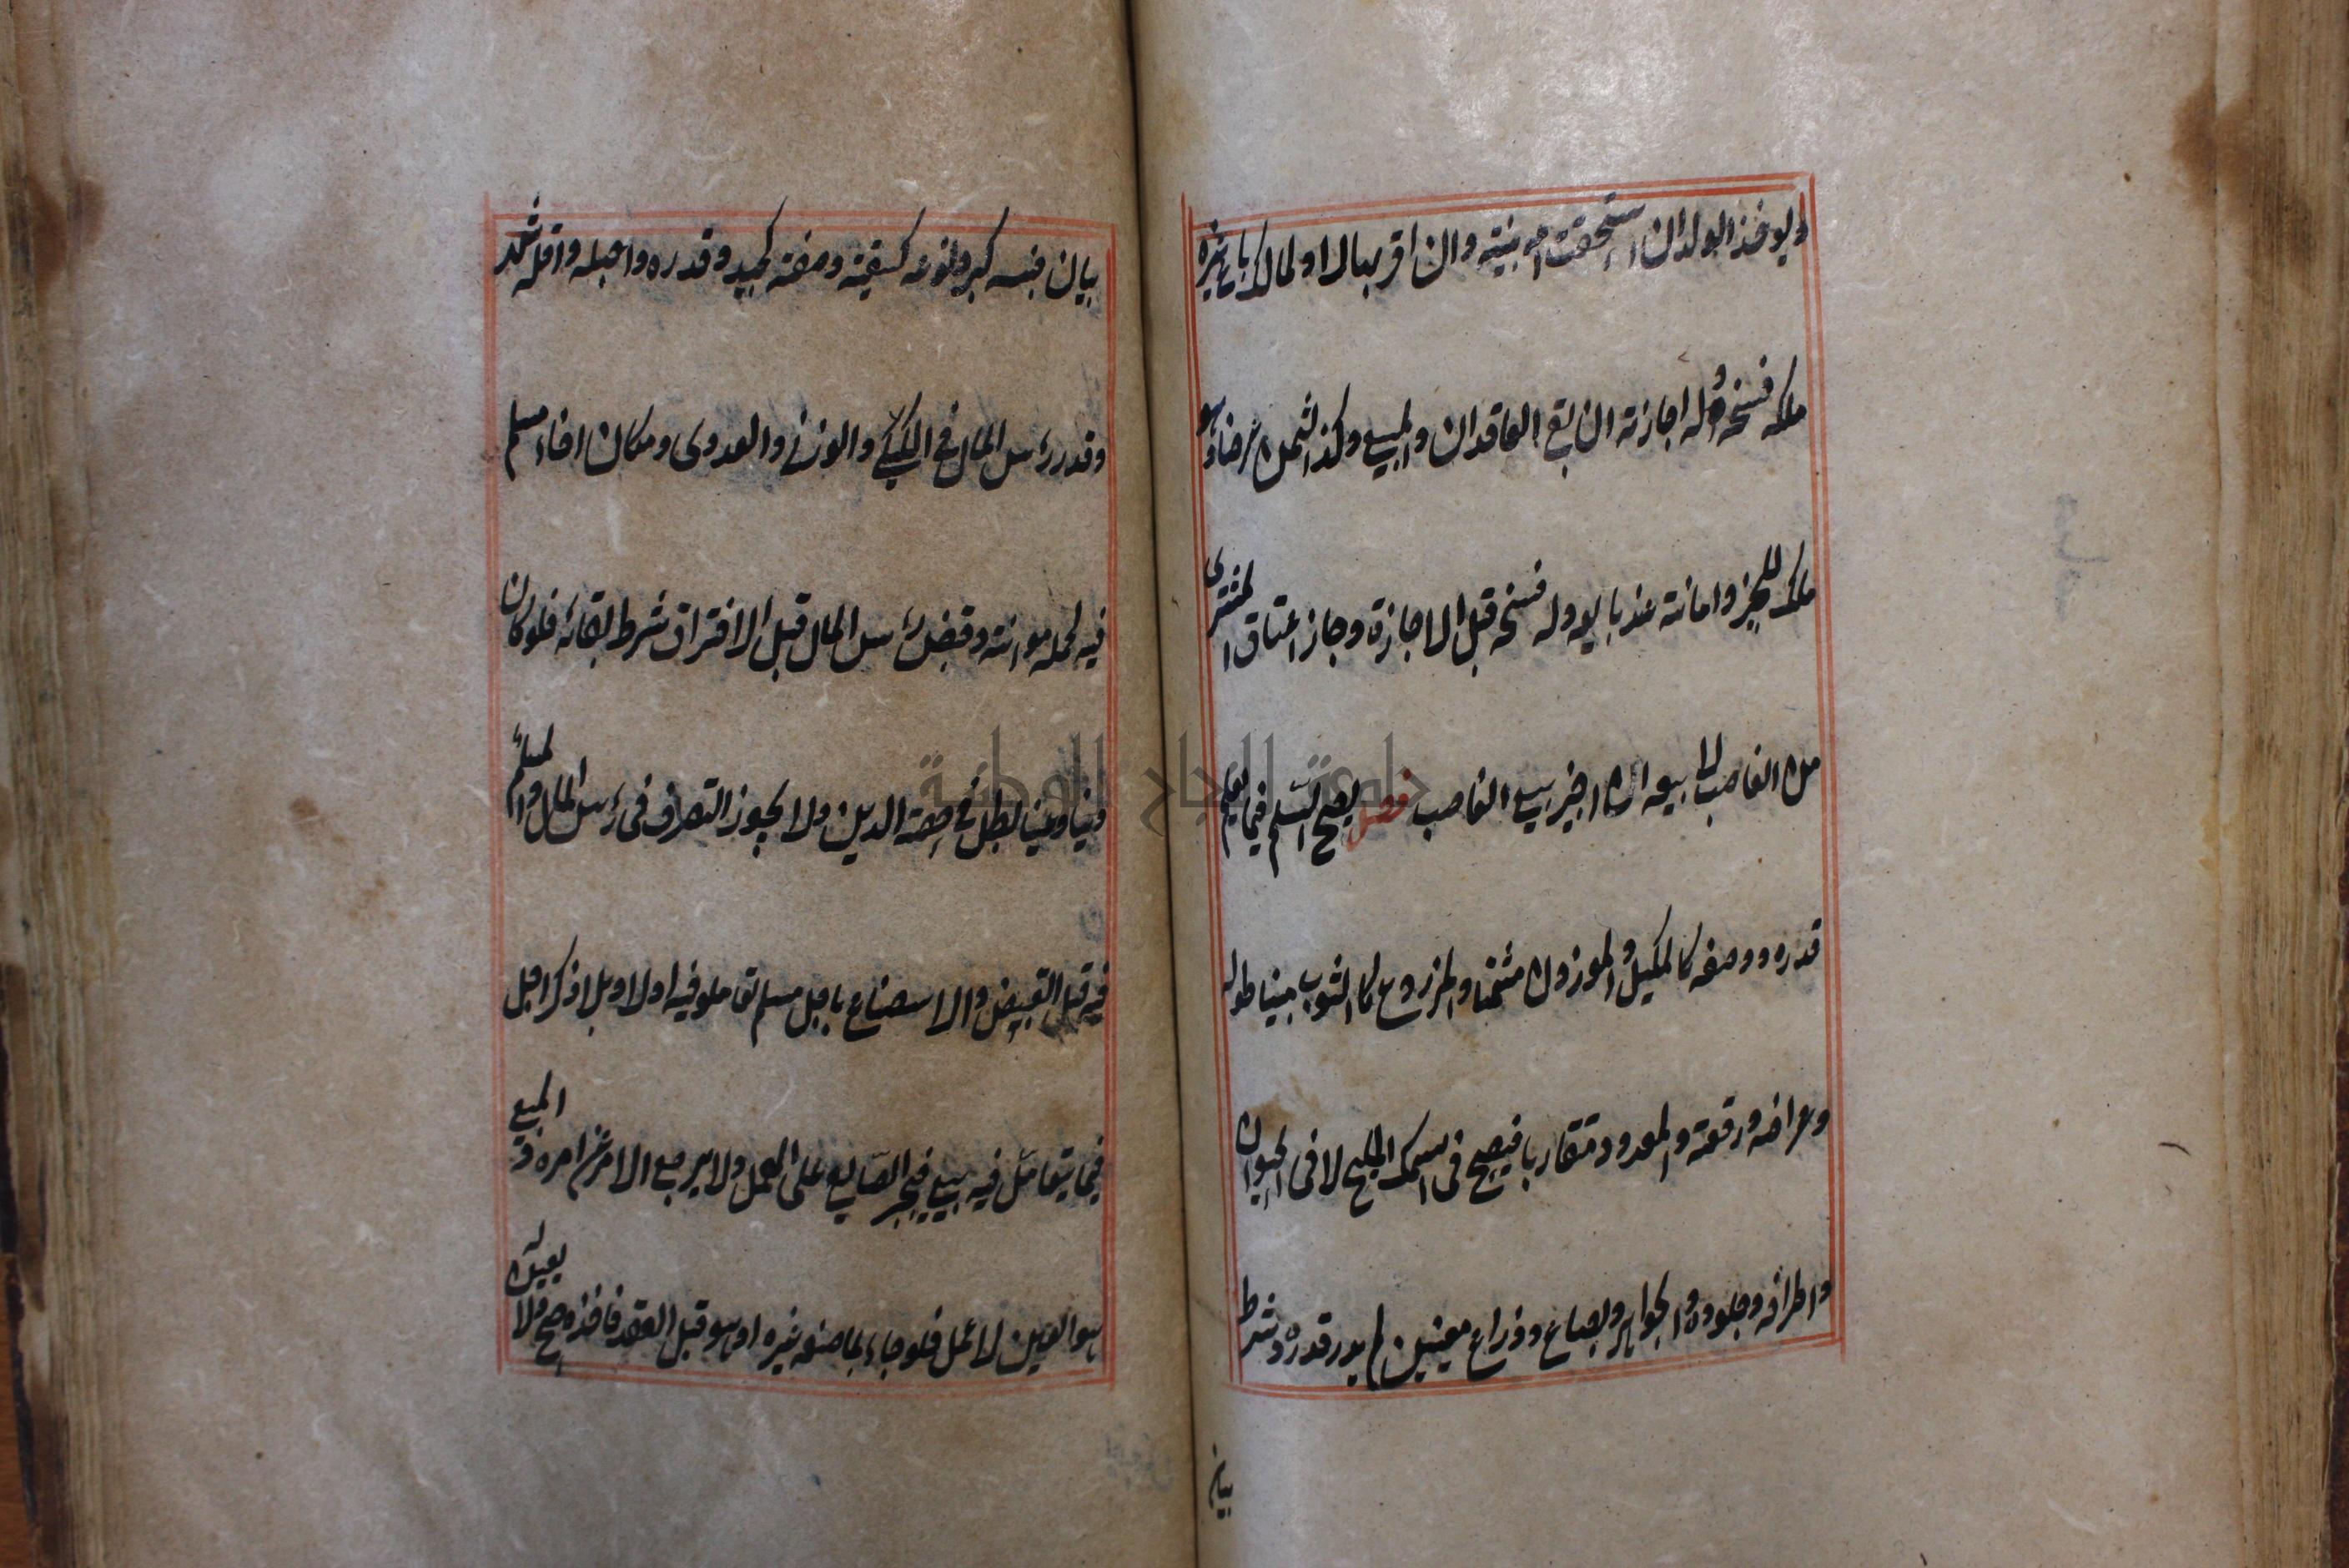 ويوخذ الولد ان استحقت امه ببينة وان اقر بها لا ولمالك باع غيره
ملكه فسخه وله اجازته ان بقى العاقدان والمبيع وكذا الثمن عرضا وهو
ملك للمجيز وامانة عند بايعه وله فسخه قبل الاجازة وجاز اعتاق المشترى
من الغاصب لا بيعه ان اجيز بيع الغاصب فصل يصح السلم فيما يعلم
قدره ووصفه كالمكيل والموزون مثمنا والمزروع كالثوب مبينا طوله
وعرضه ورقعته والمعدود متقاربا فيصح فى السمك المليح لا فى الحيوان
واطرافه وجلوده والجواهر وبصاع وذراع معينين لم يدر قدره وشرط
بيان
بيان جنسه كبر ونوعه كسقيته وصفته كجيد وقدره واجله واقله شهر
وقدر رئس المال فى الكيلي والوزني والعددى ومكان ايفاء مسلم
فيه لحمله موانته وقبض رئس المال قبل الافتراق شرط بقائه فلو كان
دينا وعينا بطل فى حصة الدين ولا يجوز التصرف فى رئس المال والمسلم
فيه قبل القبض والاستصناع باجل سلم تعاملو فيه اولا وبلا ذكر اجل
فيما يتعامل فيه بيع فيجبر الصايع على العمل ولا يرجع الامر عن امره والمبيع
هو العين لا عمل فلو جاء بما صنعه غيره او هو قبل العقد فاخذه صح ولا يعين له
جامعة النجاح الوطنية